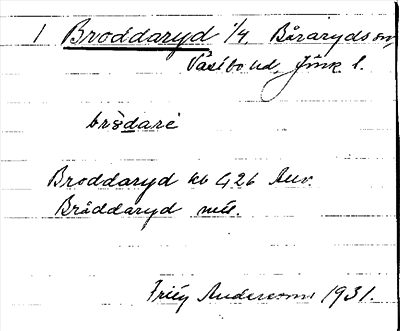 1 Broddaryd 1/4 Båraryds sn,
Västbo hd, Jönk l.
bròdari
Broddaryd kb 426 Auv.
Bråddaryd nutt.
Frity Andersson 1931.